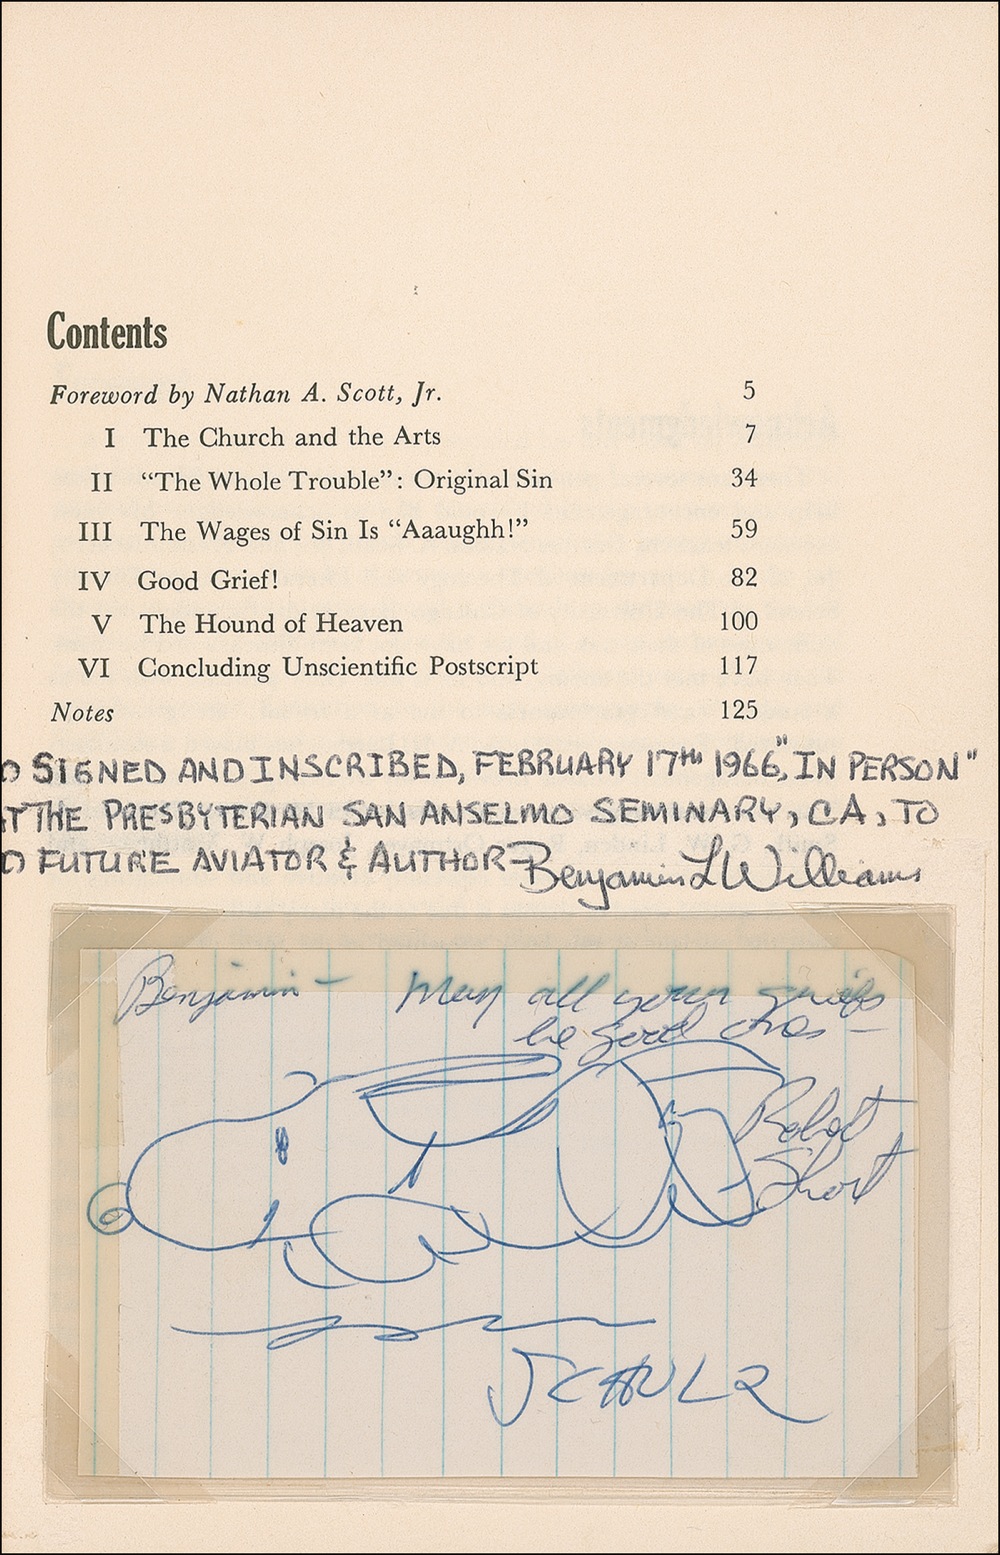 Contents
Foreword by Nathan A. Scott, Jr. 5
I The Church and the Arts 7
II “The Whole Trouble”: Original Sin 34
III The Wages of Sin Is “Aaaughh!” 59
IV Good Grief! 82
V The Hound of Heaven 100
VI Concluding Unscientific Postscript 117
Notes 125
SIGNED AND INSCRIBED, FEBRUARY 17TH 1966, "IN PERSON"
AT THE PRESBYTERIAN SAN ANSELMO SEMINARY, CA, TO
FUTURE AVIATOR & AUTHOR Benjamin L Williams
Benjamin – May all your griefs
be good ones –
Robert
Short
SCHULZ